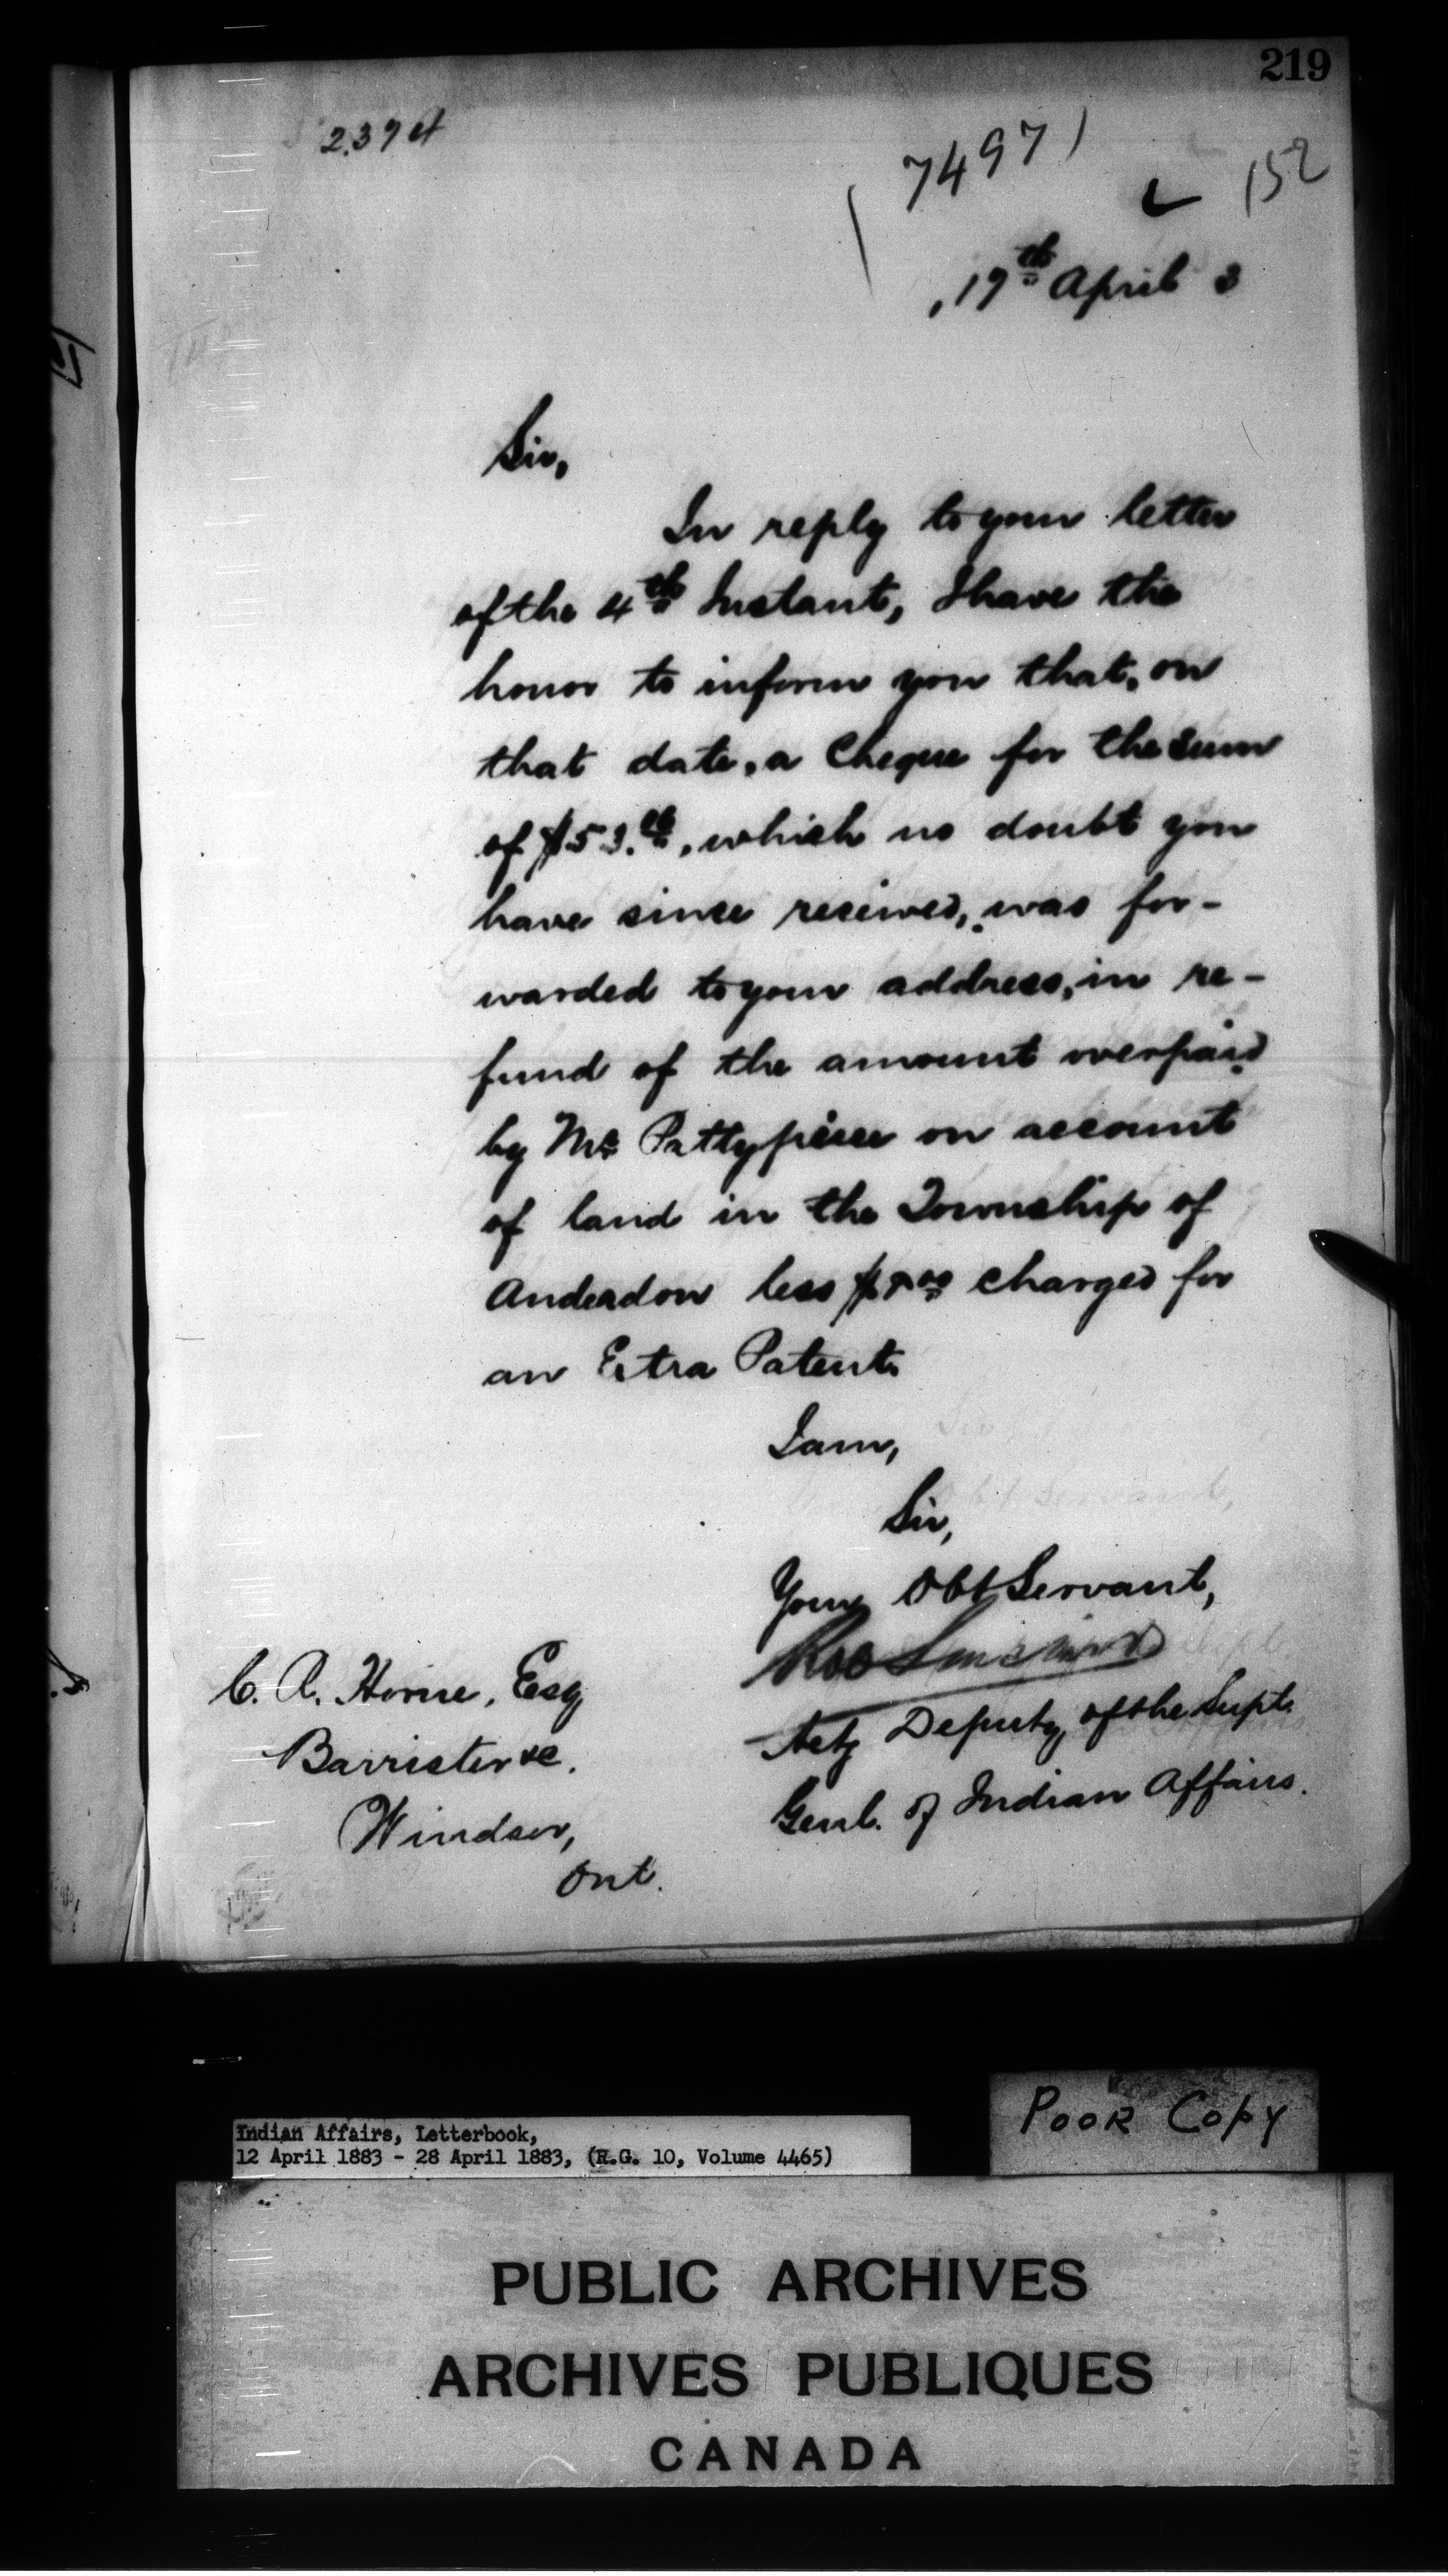 219
2379
7497
152
19th April 3
Sir,
In reply to your letter
of the 4th Instant, I have the
honor to inform you that, on
that date, a Cheque for the sum
of $53. , which no doubt you
have since received, was for-
warded to your address, in re-
fund of the amount overpaid
by Mr Pattypiece on account
of land in the Township of
Anderdon less charged for
an Extra Patent.
I am,
Sir,
Your Obt Servant,
Actg Deputy of the Supt.
Genl. of Indian Affairs.
C. A. Horne, Esq
Barrister &c.
Windsor,
Ont.
Poor Copy
Indian Affairs, Letterbook,
12 April 1883 - 28 April 1883, (R.G. 10, Volume 4465)
PUBLIC ARCHIVES
ARCHIVES PUBLIQUES
CANADA